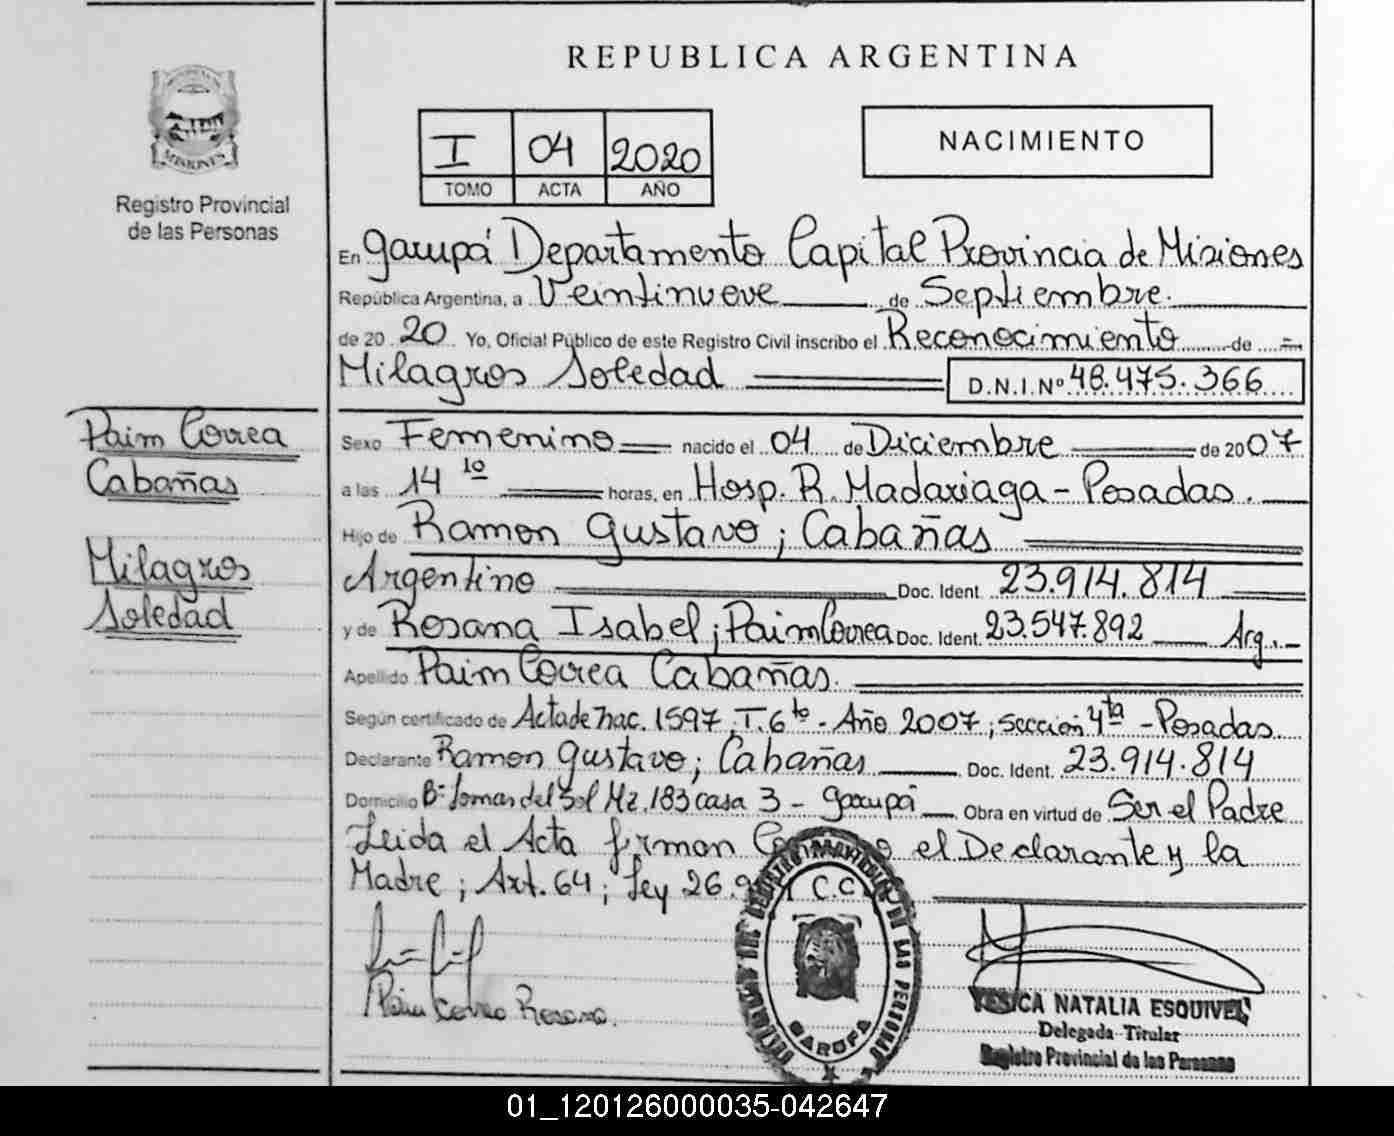 REPUBLICA ARGENTINA
MISIONES
Registro Provincial
de las Personas
I 04 2020
TOMO ACTA AÑO
NACIMIENTO
En Garupá Departamento Capital Provincia de Misiones
República Argentina, a Veintinueve de Septiembre.
de 20 20 Yo, Oficial Público de este Registro Civil inscribo el Reconocimiento de
Milagros Soledad D.N.I.Nº 48.475.366
Paim Correa
Cabañas
Milagros
Soledad
Sexo Femenino nacido el 04 de Diciembre de 2007
a las 14 10 horas, en Hosp. R. Madariaga - Posadas.
Hijo de Ramon Gustavo; Cabañas
Argentino Doc. Ident. 23.914.814
y de Rosana Isabel; Paim Correa Doc. Ident. 23.547.892 Arg.
Apellido Paim Correa Cabañas.
Según certificado de Acta de nac. 1597, T. 6to - Año 2007; sección 4ta - Posadas
Declarante Ramon Gustavo; Cabañas Doc. Ident. 23.914.814
Domicilio Bº Lomas del Sol Mz. 183 casa 3 - Garupá Obra en virtud de Ser el Padre
Leida el Acta firman el Declarante y la
Madre; Art. 64; Ley 26.9 C.C
Paim Correa Rosana.
GARUPA
YESICA NATALIA ESQUIVEL
Delegada Titular
Registro Provincial de las Personas
01_120126000035-042647